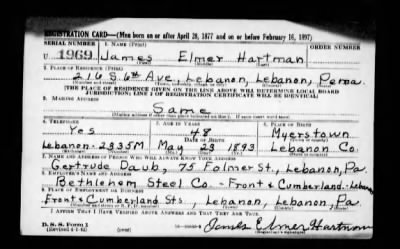 REGISTRATION CARD—(Men born on or after April 28, 1877 and on or before February 16, 1897)
SERIAL NUMBER 1. NAME (Print) ORDER NUMBER
U 1969 James Elmer Hartman
(First) (Middle) (Last)
2. PLACE OF RESIDENCE (Print)
216 S. 6th Ave, Lebanon, Lebanon, Penna.
[THE PLACE OF RESIDENCE GIVEN ON THE LINE ABOVE WILL DETERMINE LOCAL BOARD
JURISDICTION; LINE 2 OF REGISTRATION CERTIFICATE WILL BE IDENTICAL]
3. MAILING ADDRESS
Same
4. TELEPHONE 5. AGE IN YEARS 6. PLACE OF BIRTH
Yes 48 Myerstown
DATE OF BIRTH
Lebanon - 2335M May 23 1893 Lebanon Co.
7. NAME AND ADDRESS OF PERSON WHO WILL ALWAYS KNOW YOUR ADDRESS
Gertrude Daub, 75 Folmer St., Lebanon, Pa.
8. EMPLOYER'S NAME AND ADDRESS
Bethlehem Steel Co - Front & Cumberland - Lebanon
9. PLACE OF EMPLOYMENT OR BUSINESS
Front & Cumberland Sts., Lebanon, Lebanon, Pa.
I AFFIRM THAT I HAVE VERIFIED ABOVE ANSWERS AND THAT THEY ARE TRUE.
D. S. S. Form 1 James Elmer Hartman